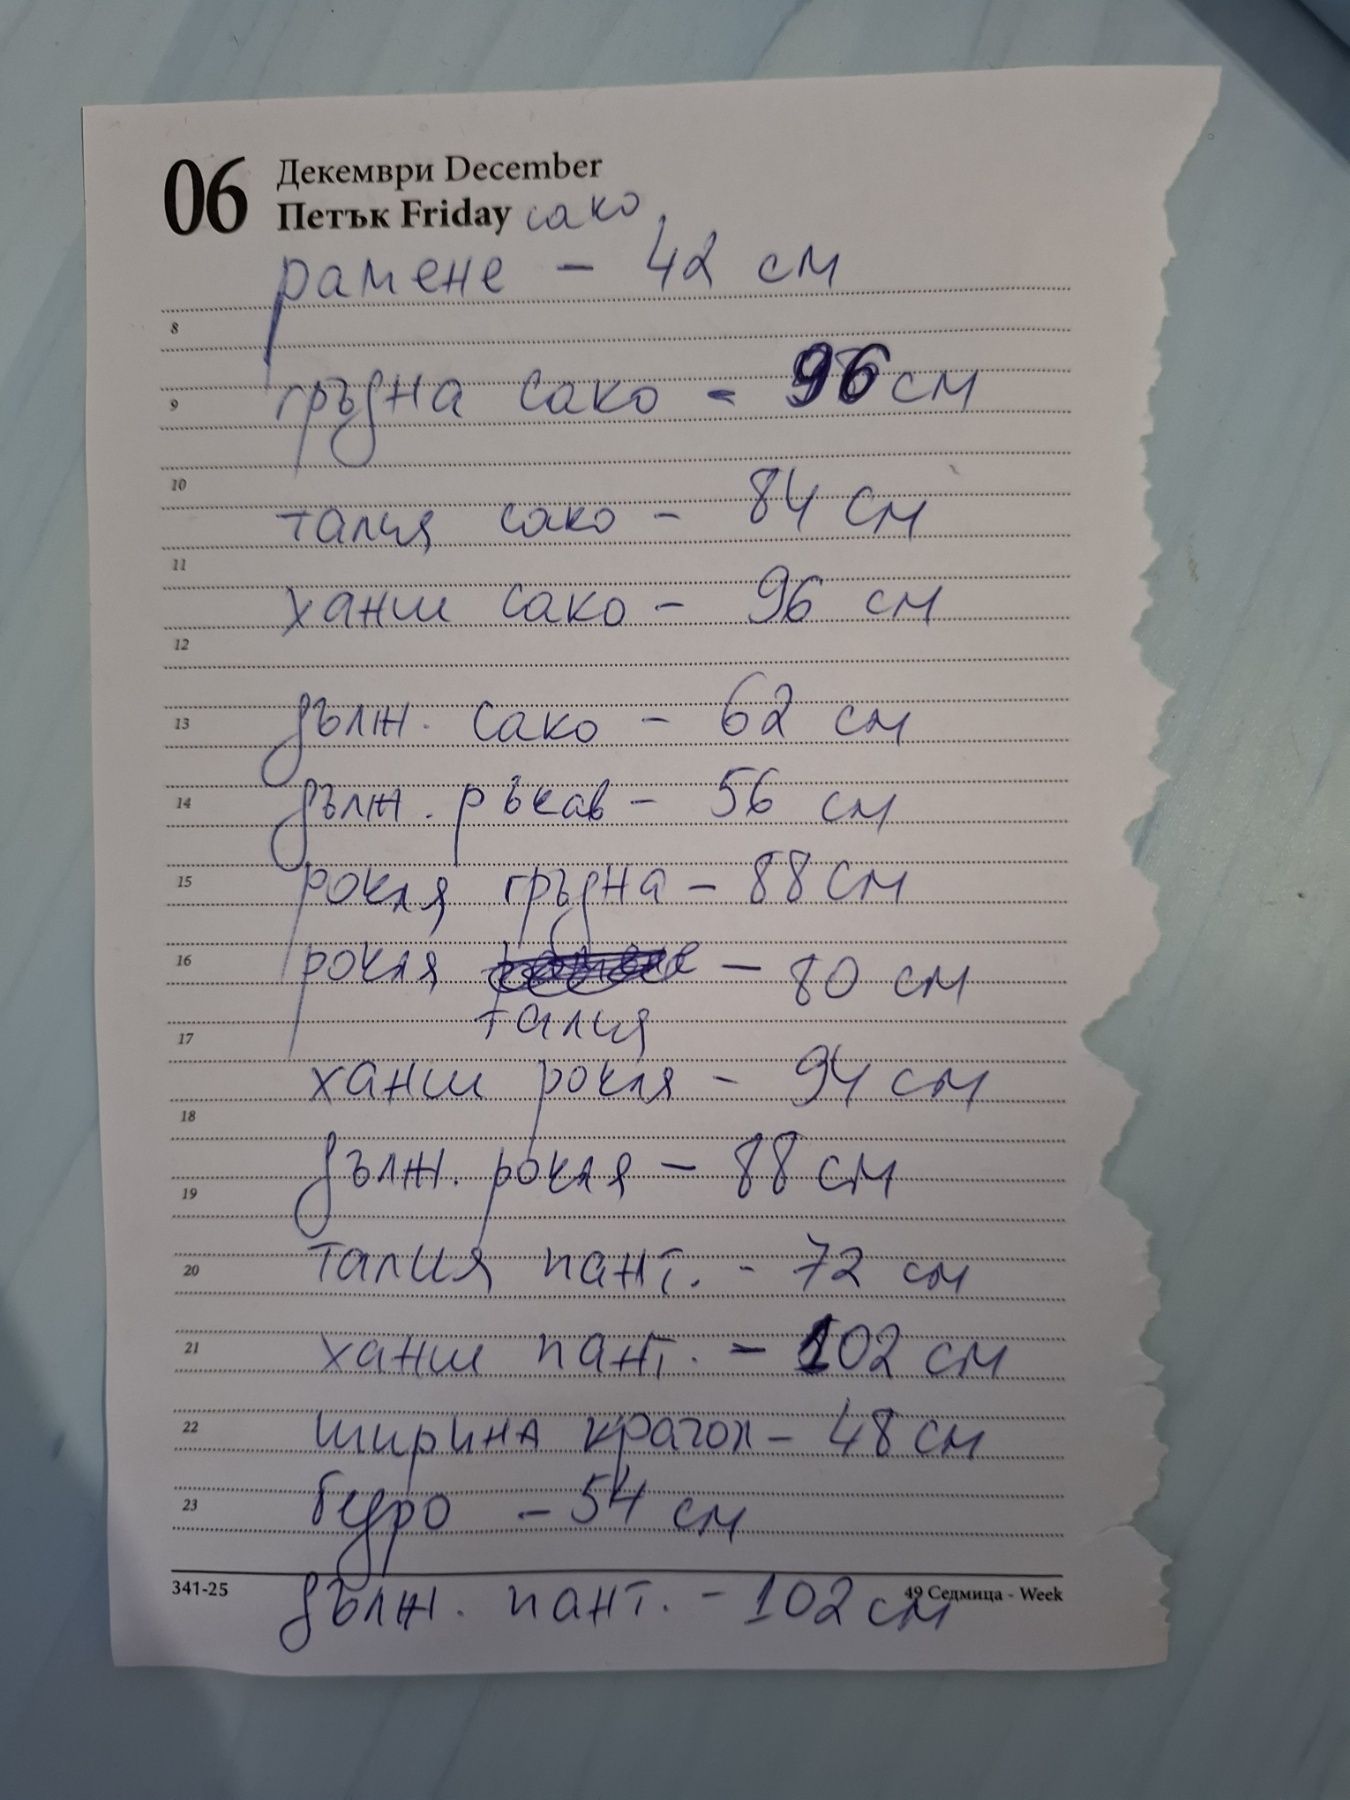 06
Декември December
Петък Friday сако
рамене - 42 см
8
гръдна сако - 96 см
9
10
талия сако - 84 см
11
ханш сако - 96 см
12
дълж. сако - 62 см
13
дълж. ръкав - 56 см
14
рокля гръдна - 88 см
15
рокля - 80 см
16
талия
17
ханш рокля - 94 см
18
дълж. рокля - 88 см
19
талия пант. - 72 см
20
ханш пант. - 102 см
21
ширина крачол - 48 см
22
бедро - 54 см
23
341-25
49 Седмица - Week
дълж. пант. - 102 см